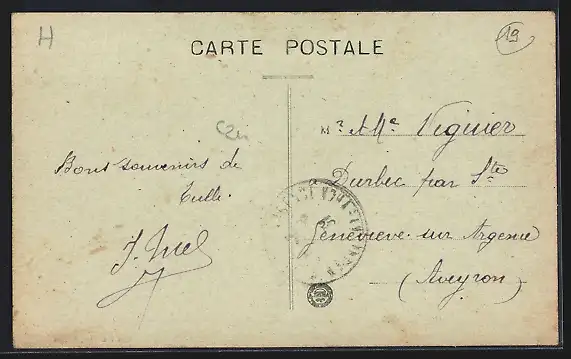 H
19
CARTE POSTALE
Bons souvenirs de
Tulle.
Mr et Me Viguier
à Durbec par Ste
Geneviève sur Argence
(Aveyron)